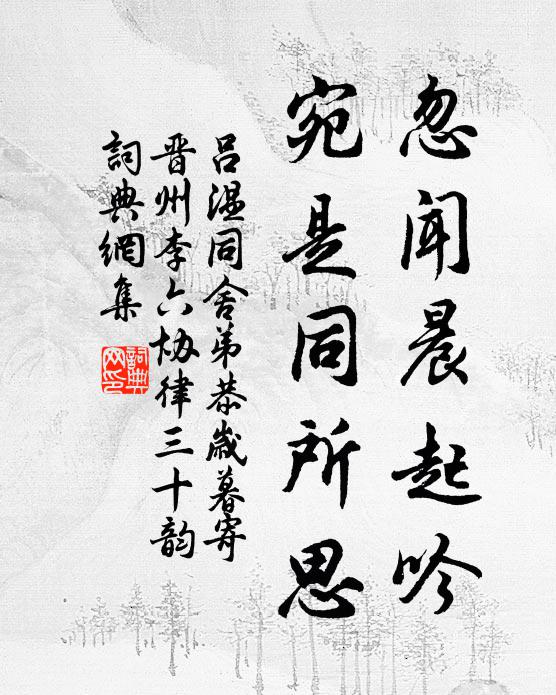 忽闻晨起吟
宛是同所思
吕温同舍弟恭歲暮寄
晋州李六协律三十韵
詞典網集
詞典網印